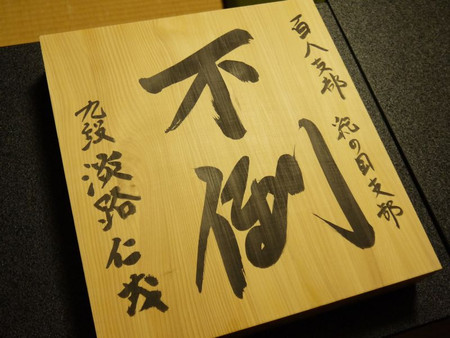 百八支部
蛇の目支部
不倒
九段 淡路仁茂